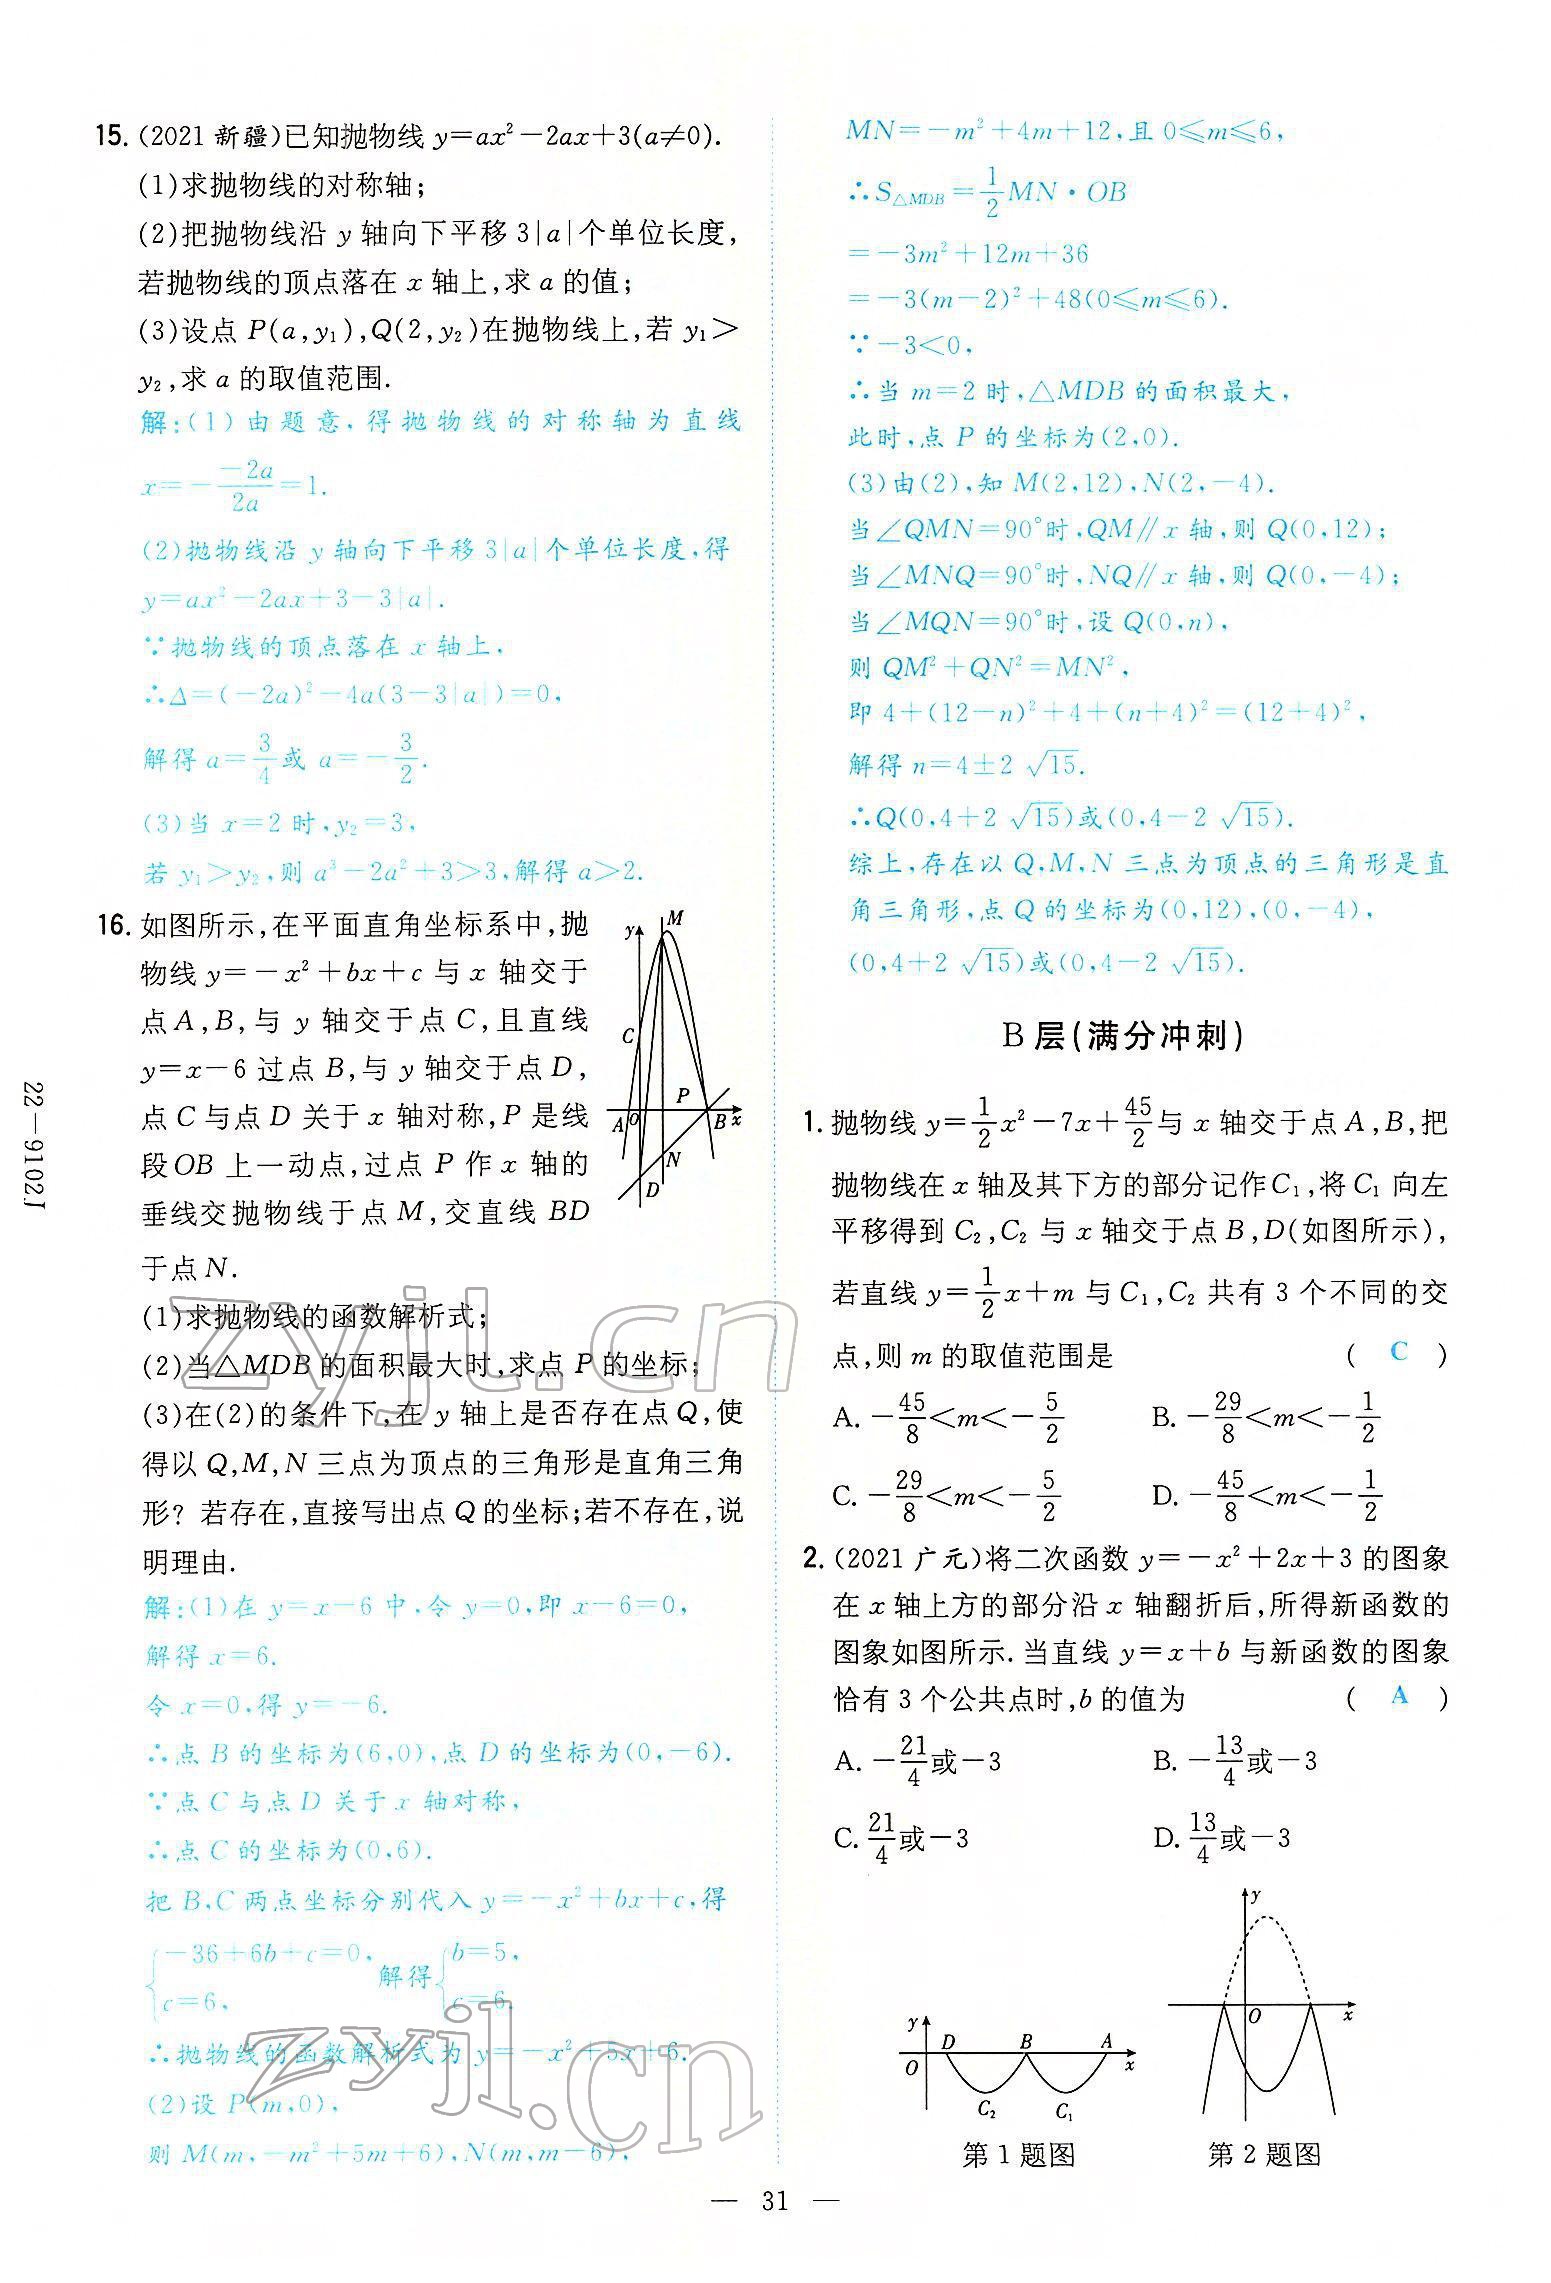 15. (2021 新疆)已知抛物线 y=ax²-2ax+3(a≠0).
(1)求抛物线的对称轴;
(2)把抛物线沿 y 轴向下平移 3|a|个单位长度,
若抛物线的顶点落在 x 轴上,求 a 的值;
(3)设点 P(a,y₁),Q(2,y₂)在抛物线上,若 y₁>
y₂,求 a 的取值范围.
解:(1)由题意,得抛物线的对称轴为直线
x=-\frac{-2a}{2a}=1.
(2)抛物线沿 y 轴向下平移 3|a|个单位长度,得
y=ax²-2ax+3-3|a|.
∵抛物线的顶点落在 x 轴上,
∴Δ=(-2a)²-4a(3-3|a|)=0,
解得 a=\frac{3}{4}或 a=-\frac{3}{2}.
(3)当 x=2 时,y₂=3,
若 y₁>y₂,则 a³-2a²+3>3,解得 a>2.
16. 如图所示,在平面直角坐标系中,抛
物线 y=-x²+bx+c 与 x 轴交于
点A,B,与 y 轴交于点C,且直线
y=x-6 过点 B,与 y轴交于点 D,
点 C与点 D 关于 x 轴对称,P 是线
段OB 上一动点,过点 P 作 x 轴的
垂线交抛物线于点 M,交直线 BD
于点 N.
y
M
C
P
A
O
B
x
N
D
(1)求抛物线的函数解析式;
(2)当△MDB 的面积最大时,求点 P 的坐标;
(3)在(2)的条件下,在 y 轴上是否存在点 Q,使
得以 Q,M,N 三点为顶点的三角形是直角三角
形? 若存在,直接写出点 Q 的坐标;若不存在,说
明理由.
解:(1)在 y=x-6 中,令 y=0,即 x-6=0,
解得 x=6.
令 x=0,得 y=-6.
∴点 B 的坐标为(6,0),点 D 的坐标为(0,-6).
∵点 C 与点 D 关于 x 轴对称,
∴点 C 的坐标为(0,6).
把 B,C 两点坐标分别代入 y=-x²+bx+c,得
{-36+6b+c=0, c=6, 解得{b=5, c=6.
∴抛物线的函数解析式为 y=-x²+5x+6.
(2)设 P(m,0),
则 M(m,-m²+5m+6),N(m,m-6),
MN=-m²+4m+12,且 0≤m≤6,
∴S△MDB=\frac{1}{2}MN·OB
=-3m²+12m+36
=-3(m-2)²+48(0≤m≤6).
∵-3<0,
∴当 m=2 时,△MDB 的面积最大,
此时,点 P 的坐标为(2,0).
(3)由(2),知 M(2,12),N(2,-4).
当∠QMN=90°时,QM∥x 轴,则 Q(0,12);
当∠MNQ=90°时,NQ∥x 轴,则 Q(0,-4);
当∠MQN=90°时,设 Q(0,n),
则 QM²+QN²=MN²,
即 4+(12-n)²+4+(n+4)²=(12+4)²,
解得 n=4±2√15.
∴Q(0,4+2√15)或(0,4-2√15).
综上,存在以 Q,M,N 三点为顶点的三角形是直
角三角形,点 Q 的坐标为(0,12),(0,-4),
(0,4+2√15)或(0,4-2√15).
B 层(满分冲刺)
1. 抛物线 y=\frac{1}{2}x²-7x+\frac{45}{2}与 x 轴交于点 A,B,把
抛物线在 x 轴及其下方的部分记作C₁,将 C₁ 向左
平移得到 C₂,C₂ 与 x 轴交于点 B,D(如图所示),
若直线 y=\frac{1}{2}x+m 与 C₁,C₂ 共有 3 个不同的交
点,则 m 的取值范围是 ( C )
A. -\frac{45}{8}<m<-\frac{5}{2} B. -\frac{29}{8}<m<-\frac{1}{2}
C. -\frac{29}{8}<m<-\frac{5}{2} D. -\frac{45}{8}<m<-\frac{1}{2}
2. (2021 广元)将二次函数 y=-x²+2x+3 的图象
在 x 轴上方的部分沿 x 轴翻折后,所得新函数的
图象如图所示.当直线 y=x+b 与新函数的图象
恰有 3 个公共点时,b 的值为 ( A )
A. -\frac{21}{4}或-3 B. -\frac{13}{4}或-3
C. \frac{21}{4}或-3 D. \frac{13}{4}或-3
y
D
B
A
O
x
C₂
C₁
第 1 题图
y
O
x
第 2 题图
22-9102J
— 31 —
zyjl.cn
zyjl.cn